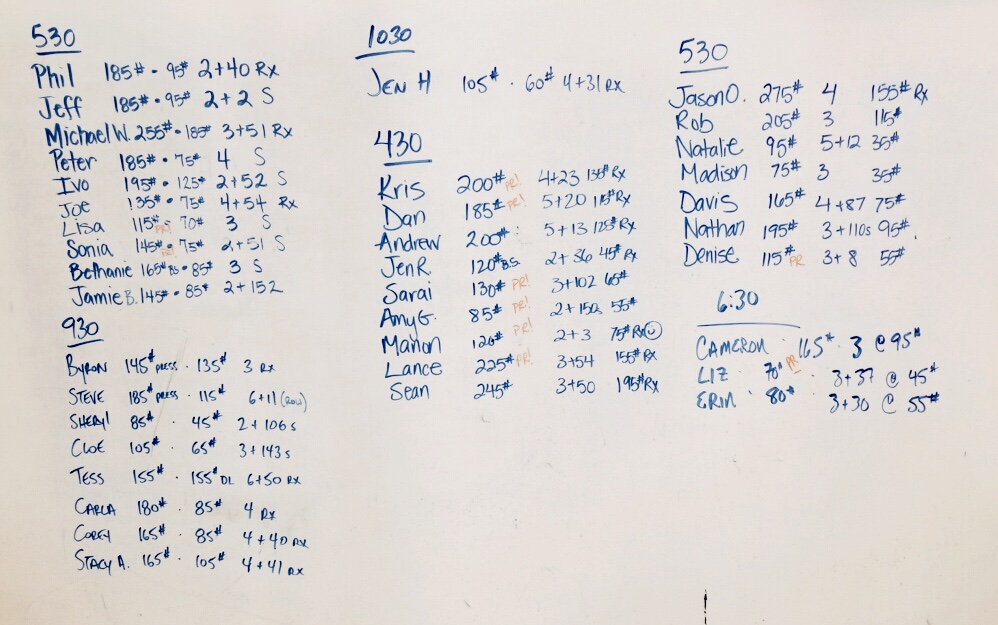 530
Phil 185# • 95# 2+40 Rx
Jeff 185# • 95# 2+2 S
Michael W. 255# • 185# 3+51 Rx
Peter 185# • 75# 4 S
Ivo 195# • 125# 2+52 S
Joe 135# • 75# 4+54 Rx
Lisa 115# PR! 70# 3 S
Sonia 145# PR! • 75# 2+51 S
Bethanie 165# BS • 85# 3 S
Jamie B. 145# • 85# 2+152
930
Byron 145# press • 135# 3 Rx
Steve 185# press • 115# 6+11 (Row)
Sheryl 85# • 45# 2+106 s
Cloe 105# • 65# 3+143 s
Tess 155# • 155# DL 6+50 Rx
Carla 180# • 85# 4 Rx
Corey 165# • 85# 4+40 Rx
Stacy A. 165# • 105# 4+41 Rx
1030
Jen H 105# • 60# 4+31 Rx
430
Kris 200# PR! 4+23 Rx
Dan 185# PR! 5+20 115# Rx
Andrew 200# 5+13 125# Rx
Jen R. 120# BS 2+36 45# Rx
Sarai 130# PR! 3+102 65#
Amy G. 85# PR! 2+150s 55#
Marion 120# PR! 2+3 75# Rx
Lance 225# PR! 3+54 155# Rx
Sean 245# 3+50 195# Rx
530
Jason O. 275# 4 155# Rx
Rob 205# 3 115#
Natalie 95# 5+12 35#
Madison 75# 3 35#
Davis 165# 4+87 75#
Nathan 195# 3+110s 95#.
Denise 115# PR 3+8 55#
6:30
Cameron • 165# • 3 @ 95#
Liz • 70# PR • 3+37 @ 45#
Erin • 80# 3+30 @ 55#